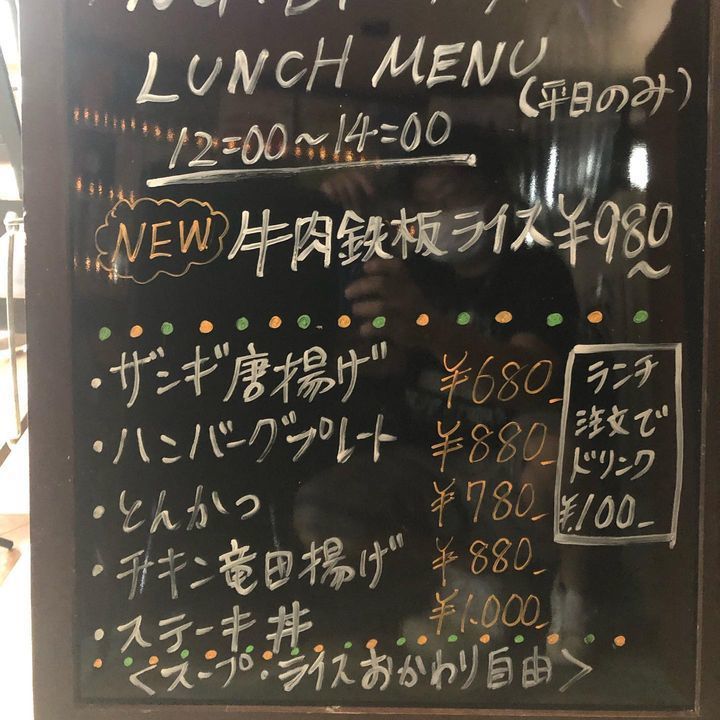 LUNCH MENU
(平日のみ)
12=00~14=00
NEW 牛肉鉄板ライス ¥980~
・ザンギ唐揚げ ¥680-
・ハンバーグプレート ¥880-
・とんかつ ¥780-
・チキン竜田揚げ ¥880-
・ステーキ丼 ¥1.000-
ランチ
注文で
ドリンク
¥100-
<スープ・ライスおかわり自由>